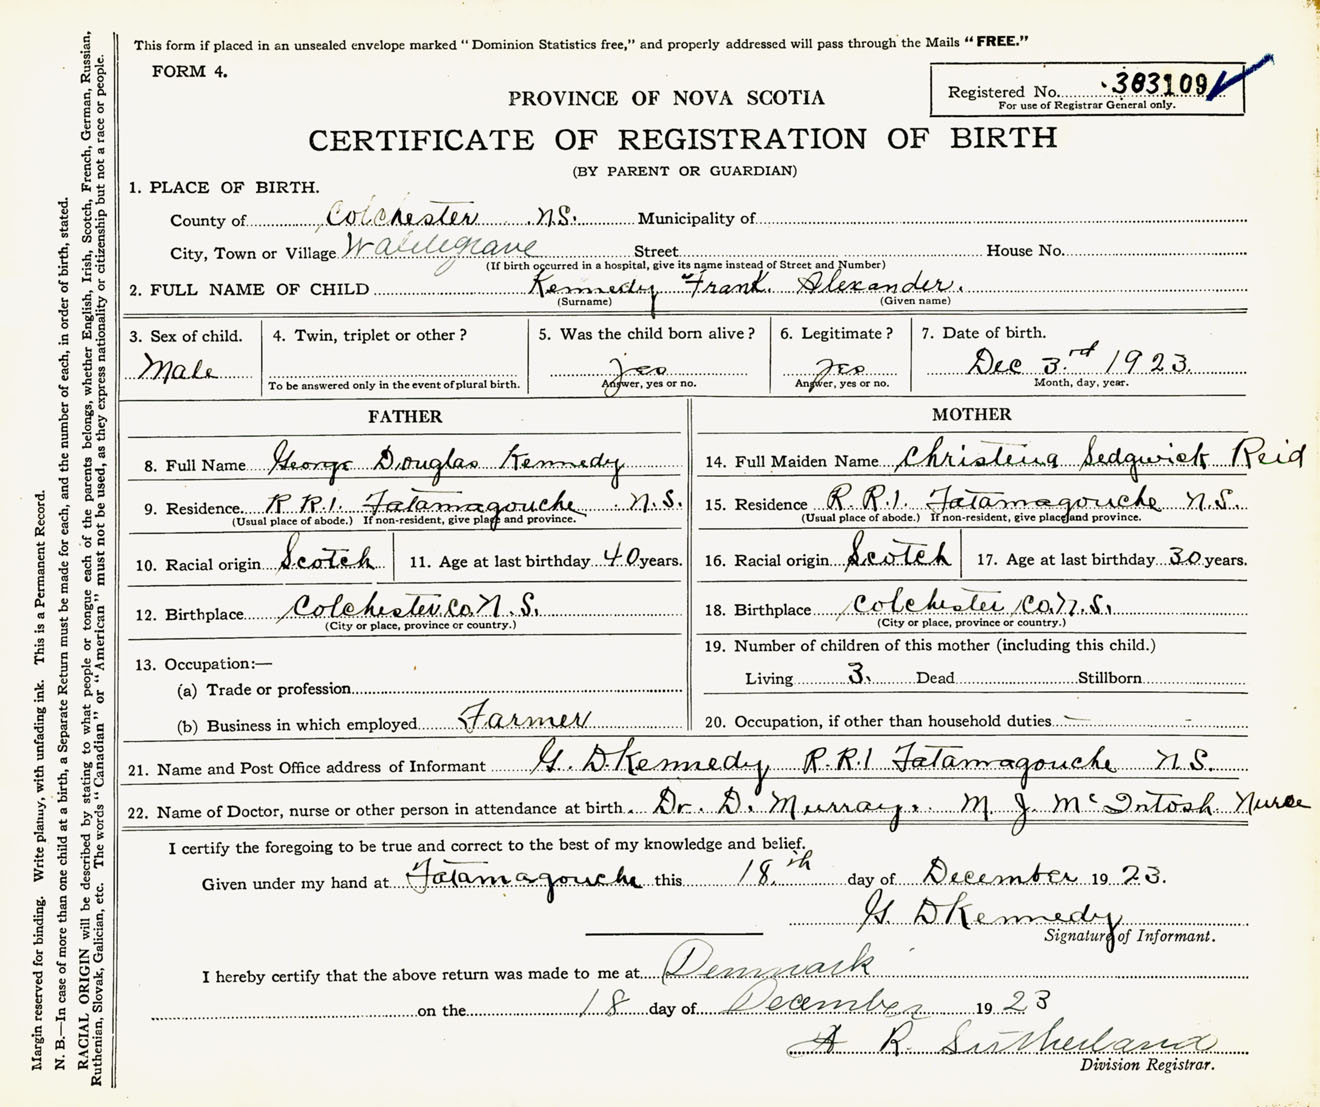 This form if placed in an unsealed envelope marked "Dominion Statistics free," and properly addressed will pass through the Mails "FREE."
FORM 4.
Registered No. 383109
For use of Registrar General only.
PROVINCE OF NOVA SCOTIA
CERTIFICATE OF REGISTRATION OF BIRTH
(BY PARENT OR GUARDIAN)
1. PLACE OF BIRTH.
County of Colchester N.S. Municipality of
City, Town or Village Waldegrave Street House No.
(If birth occurred in a hospital, give its name instead of Street and Number)
2. FULL NAME OF CHILD Kennedy Frank Alexander.
(Surname) (Given name)
3. Sex of child. 4. Twin, triplet or other? 5. Was the child born alive? 6. Legitimate? 7. Date of birth.
Male yes yes Dec 3rd 1923
To be answered only in the event of plural birth. Answer, yes or no. Answer, yes or no. Month, day, year.
FATHER
8. Full Name George Douglas Kennedy
9. Residence R.R.1. Tatamagouche N.S.
(Usual place of abode.) If non-resident, give place and province.
10. Racial origin Scotch 11. Age at last birthday 40 years.
12. Birthplace Colchester Co. N.S.
(City or place, province or country.)
13. Occupation:—
(a) Trade or profession
(b) Business in which employed Farmer
MOTHER
14. Full Maiden Name Christena Sedgwick Reid
15. Residence R.R.1. Tatamagouche N.S.
(Usual place of abode.) If non-resident, give place and province.
16. Racial origin Scotch 17. Age at last birthday 30 years.
18. Birthplace Colchester Co. N.S.
(City or place, province or country.)
19. Number of children of this mother (including this child.)
Living 3. Dead Stillborn
20. Occupation, if other than household duties — -
21. Name and Post Office address of Informant G. D Kennedy R.R.1 Tatamagouche N.S.
22. Name of Doctor, nurse or other person in attendance at birth. Dr. D. Murray. M J McIntosh Nurse
I certify the foregoing to be true and correct to the best of my knowledge and belief.
Given under my hand at Tatamagouche this 18.th day of December 1923.
G. D Kennedy
Signature of Informant.
I hereby certify that the above return was made to me at Denmark
on the 18 day of December 1923
A R. Sutherland
Division Registrar.
Margin reserved for binding. Write plainly, with unfading ink. This is a Permanent Record.
N. B.—In case of more than one child at a birth, a Separate Return must be made for each, and the number of each, in order of birth, stated.
RACIAL ORIGIN will be described by stating to what people or tongue each of the parents belongs, whether English, Irish, Scotch, French, German, Russian,
Ruthenian, Slovak, Galician, etc. The words "Canadian" or "American" must not be used, as they express nationality or citizenship but not a race or people.